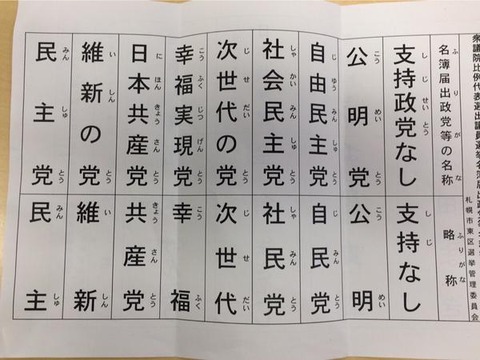 衆議院比例代表選出議員選挙名簿届出政党等
札幌市東区選挙管理委員会
ふりがな
名簿届出政党等の名称
ふりがな
略称
しじせいとう
支持政党なし
しじ
支持なし
こうめいとう
公明党
こうめい
公明
じゆうみんしゅとう
自由民主党
じみんとう
自民党
しゃかいみんしゅとう
社会民主党
しゃみんとう
社民党
じせだいとう
次世代の党
じせだい
次世代
こうふくじつげんとう
幸福実現党
こうふく
幸福
にほんきょうさんとう
日本共産党
きょうさんとう
共産党
いしんとう
維新の党
いしん
維新
みんしゅとう
民主党
みんしゅ
民主